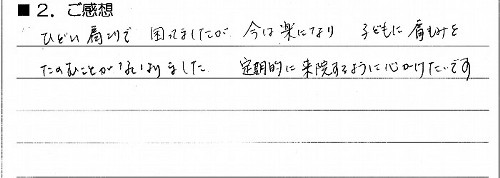 ■ 2. ご感想
ひどい肩こりで 困ってましたが 今は楽になり 子どもに肩もみを
たのむことがなくなりました 定期的に来院するように心がけたいです